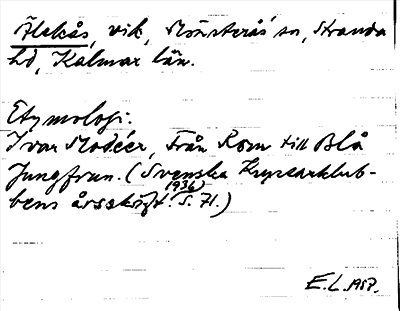 Ålekås, vik, Mönsterås sn, Stranda
hd, Kalmar län.
Etymologi:
Ivar Modéer, Från Rom till Blå
Jungfrun. (Svenska Kryssarklub-
bens årsskrift. 1936, S. 71.)
E.L. 1957.